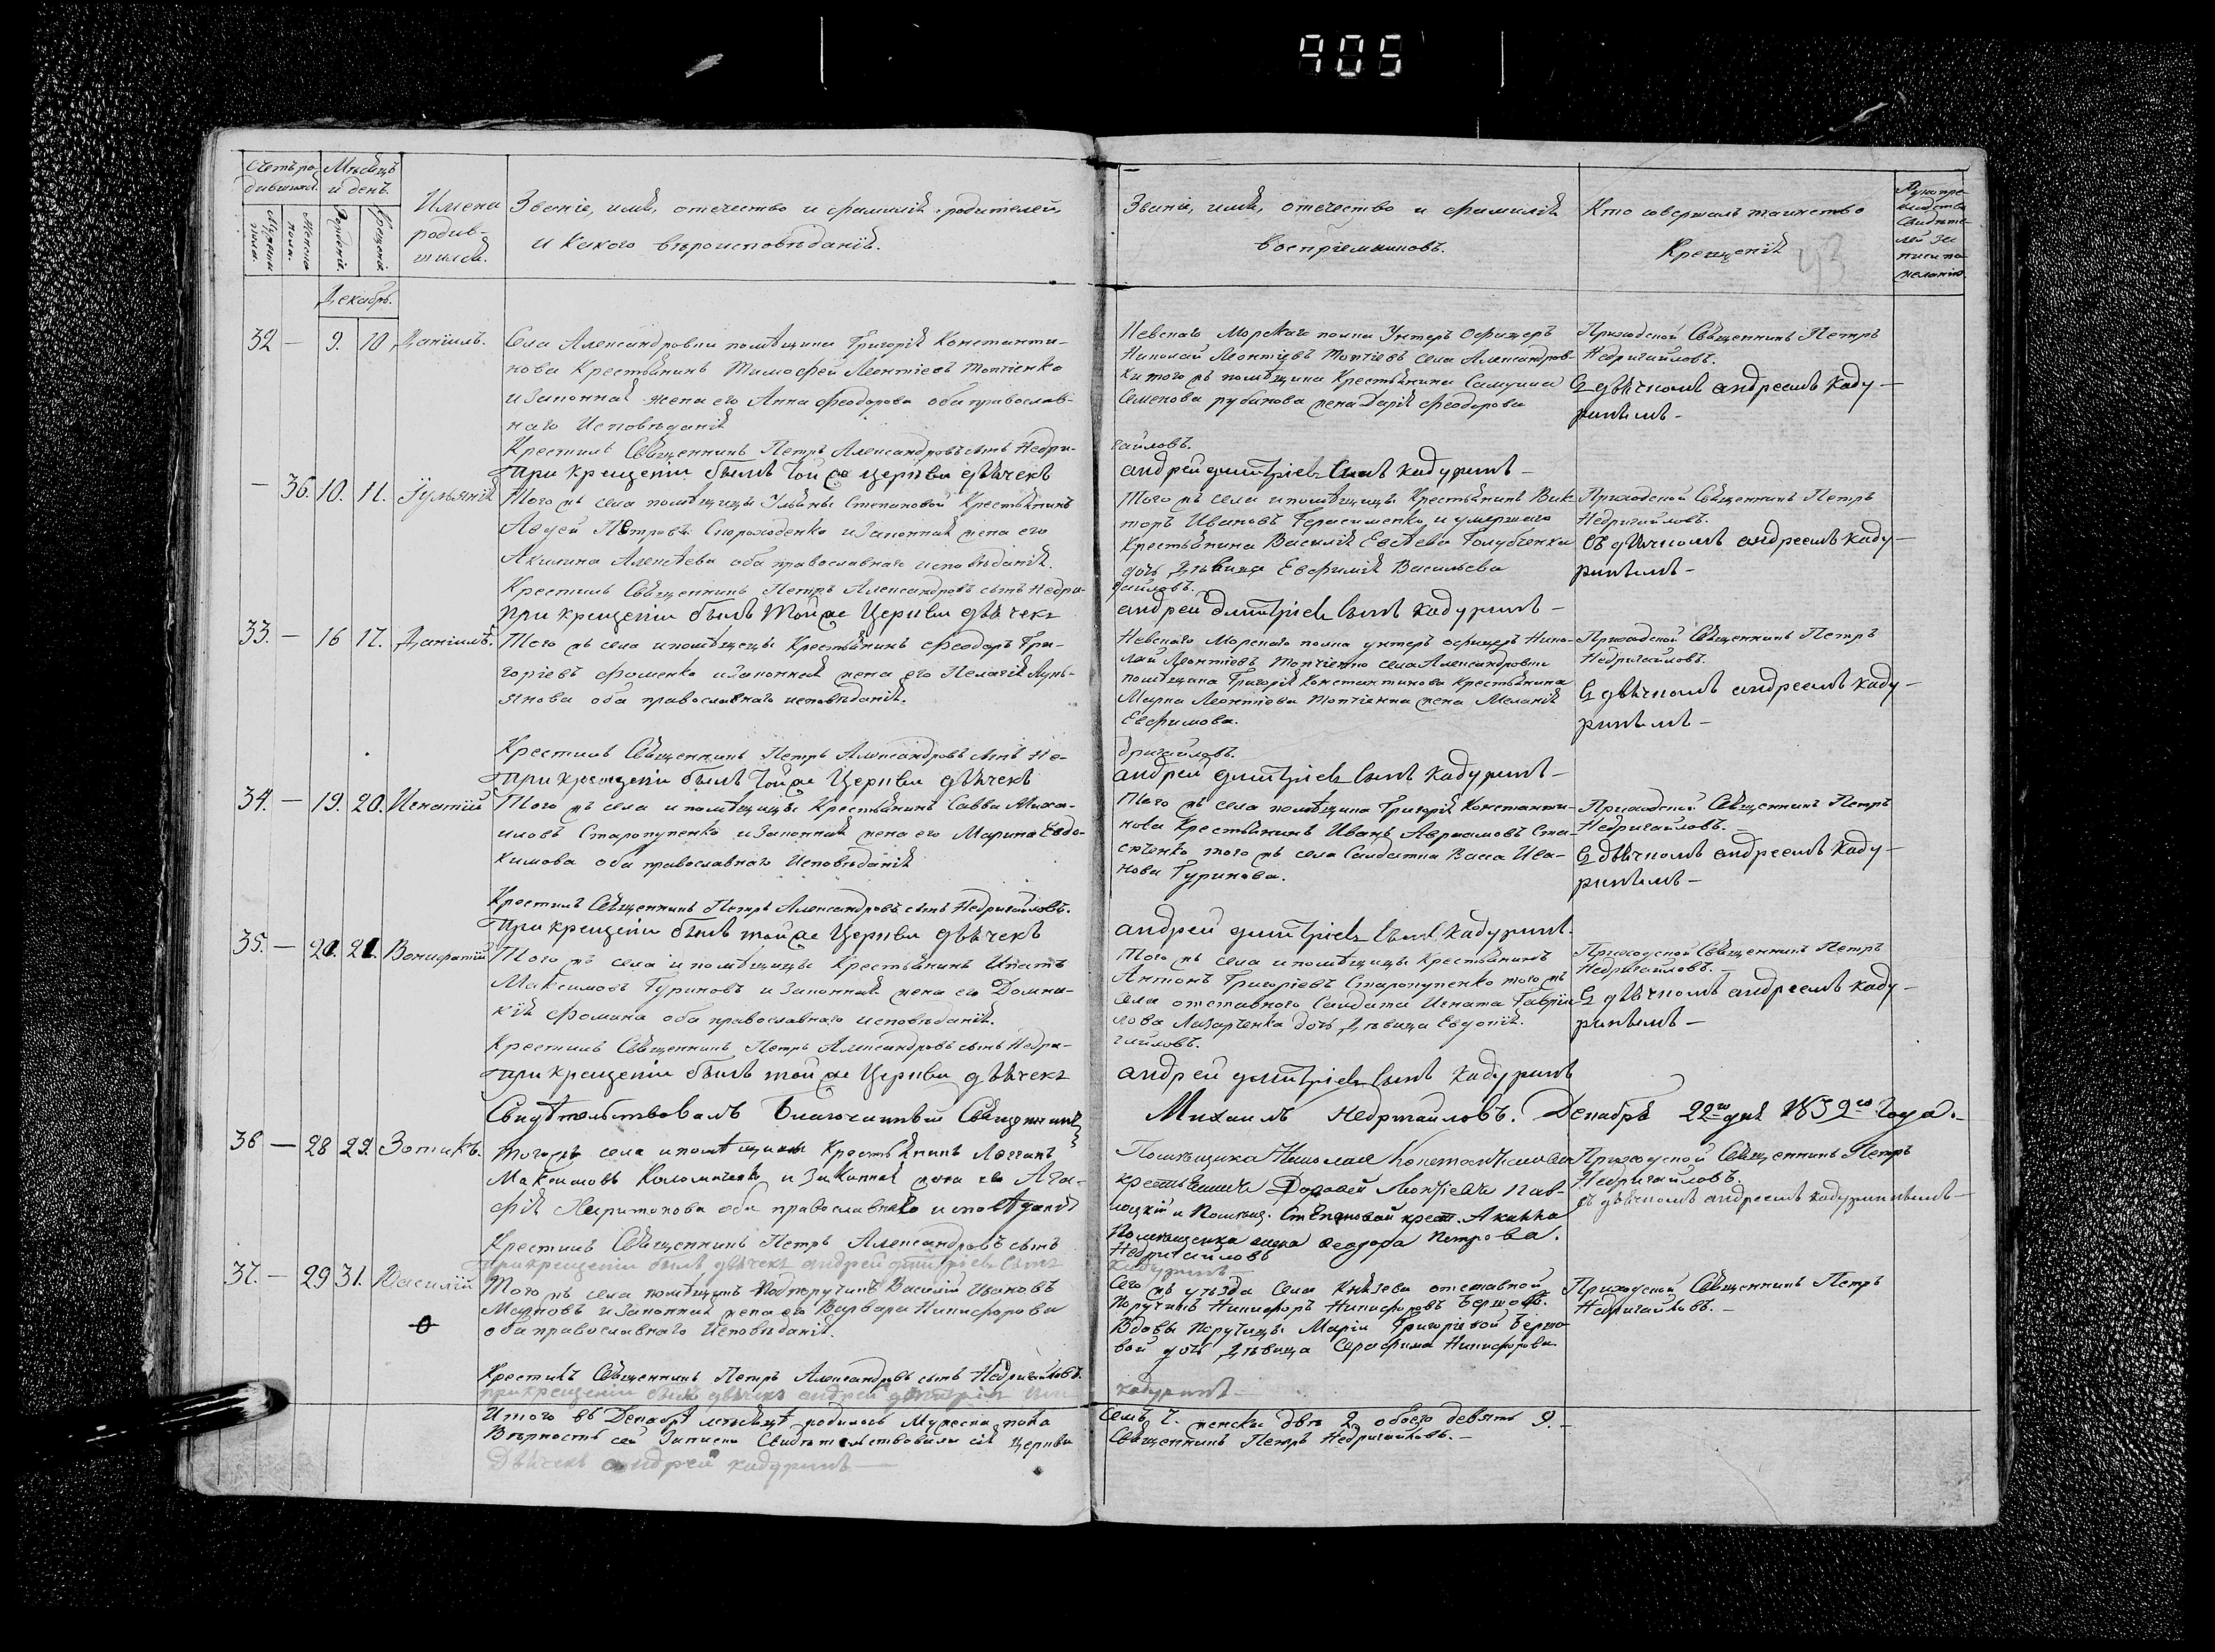 905
Счетъ ро-
дившихся.
Мѣсяцъ
и день.
Мужеска
пола.
Женска
пола.
Рожденія.
Крещенія.
Имена
родив-
шихся.
Званіе, имя, отечество и фамилія родителей,
и какого вѣроисповѣданія.
Званіе, имя, отечество и фамилія
воспріемниковъ.
Кто совершалъ таинство
Крещенія
43
Рукопри-
кладство
Свидѣте-
лей за-
писи по
желанію
Декабрь.
32 — 9. 10 Даніилъ.
Села Александровки помѣщика Григорія Константи-
нова Крестьянинъ Тимофей Леонтіевъ Топчіенко
и Законная жена его Анна Феодорова оба православ-
наго Исповѣданія
Крестилъ Священникъ Петръ Александровъ сынъ Недри-
При крещеніи былъ той же церкви дьячекъ
Невскаго Морскаго полка Унтеръ Офицеръ
Николай Леонтіевъ Топчіевъ села Александров-
ки того жъ помѣщика Крестьянина Самуила
Семенова рубанова жена Дарія Феодорова
гайловъ.
андрей дмитріевъ сынъ кадуринъ —
Приходской Священникъ Петръ
Недригайловъ.
Съ дьячкомъ андреемъ каду —
ринымъ —
— 36. 10. 11. Іуліянія
Того жъ села помѣщицы Ульяны Степановой Крестьянинъ
Авдей Петровъ Скороходенко и Законная жена его
Акилина Алексѣева оба православнаго исповѣданія.
Крестилъ Священникъ Петръ Александровъ сынъ Недри-
При крещеніи былъ той же Церкви дьячекъ
Того жъ села и помѣщицы Крестьянинъ Вик-
торъ Ивановъ Герасименко, и умершаго
Крестьянина Василія Евсѣева Голубченка
дочь Дѣвица Евфимія Васильева
гайловъ.
андрей дмитріевъ сынъ кадуринъ —
Приходской Священникъ Петръ
Недригайловъ.
Съ дьячкомъ андреемъ каду —
ринымъ —
33. — 16 17. Даніилъ.
Того жъ села и помѣщицы Крестьянинъ Феодоръ Гри-
горіевъ Фоменко и Законная жена его Пелагія Лукь-
янова оба православнаго исповѣданія.
Крестилъ Священникъ Петръ Александровъ сынъ Не-
При крещеніи былъ той же Церкви дьячекъ
Невскаго Морскаго полка унтеръ офицеръ Нико-
лай Леонтіевъ Топчіенко села Александровки
помѣщика Григорія Константинова Крестьянина
Марка Леонтіева Топчіенка жена Меланія
Евфимова.
дригайловъ.
андрей дмитріевъ сынъ кадуринъ —
Приходской Священникъ Петръ
Недригайловъ.
Съ дьячкомъ андреемъ каду —
ринымъ —
34. — 19. 20. Игнатій
Того жъ села и помѣщицы Крестьянинъ Савва Миха-
иловъ Старопупенко и Законная жена его Марина Евдо-
кимова оба православнаго Исповѣданія
Крестилъ Священникъ Петръ Александровъ сынъ Недригайловъ.
При крещеніи былъ той же Церкви дьячекъ
Того жъ села помѣщика Григорія Константи-
нова Крестьянинъ Иванъ Авраамовъ Ста-
сюченко того жъ села Салдатка Васса Ива-
нова Гуринова.
андрей дмитріевъ сынъ кадуринъ.
Приходской Священникъ Петръ
Недригайловъ.
Съ дьячкомъ андреемъ каду —
ринымъ —
35. — 20. 21. Вонифатій
Того жъ села и помѣщицы Крестьянинъ Ипатъ
Максимовъ Гуриновъ и Законная жена его Домни-
кія Фомина оба православнаго исповѣданія.
Крестилъ Священникъ Петръ Александровъ сынъ Недри-
При крещеніи былъ той же Церкви дьячекъ
Того жъ села и помѣщицы Крестьянинъ
Антонъ Григоріевъ Старопупенко того жъ
села отставного Салдата Игната Гаврии-
лова Лазарченка дочь Дѣвица Евдокія.
гайловъ.
андрей дмитріевъ сынъ кадуринъ
Приходской Священникъ Петръ
Недригайловъ. —
Съ дьячкомъ андреемъ каду —
ринымъ —
Свидѣтельствовалъ Благочинный Священникъ
Михаилъ Недригайловъ. Декабря 22го дня 1859го года. —
36 — 28 29. Зотикъ.
Того жъ села и помѣщицы Крестьянинъ Логгинъ
Максимовъ Коломіченко и Законная жена его Ага-
фія Харитонова оба православнаго исповѣданія
Крестилъ Священникъ Петръ Александровъ сынъ
При крещеніи былъ дьячекъ андрей дмитріевъ сынъ
Помѣщика Николая Константинова
крестьянинъ Дорофей Леонтіевъ Пав-
лоцкій и Помѣщ. Степановой крест.
жена Феодора Петрова.
Недригайловъ
кадуринъ —
Приходской Священникъ Петръ
Недригайловъ.
съ дьячкомъ андреемъ кадуринымъ —
37. — 29 31. Василій
Того жъ села помѣщикъ Подпоручикъ Василій Ивановъ
Марковъ и Законная жена его Варвара Никифорова
оба православнаго Исповѣданія.
Крестилъ Священникъ Петръ Александровъ сынъ Недригайловъ.
при крещеніи былъ дьячекъ андрей дмитріевъ сынъ
Сего жъ уѣзда Села Князева отставной
Поручикъ Никифоръ Никифоровъ
Вдовы Поручицы Маріи Григоріевой
вой дочь Дѣвица Серафима Никифорова
кадуринъ —
Приходской Священникъ Петръ
Недригайловъ. —
Итого въ Декабрѣ мѣсяцѣ родилось Мужеска пола
Вѣрность сей Записи Свидѣтельствовали сей Церкви
Дьячекъ андрей кадуринъ —
семь 7. женска двѣ 2. обоего девять 9. —
Священникъ Петръ Недригайловъ. —